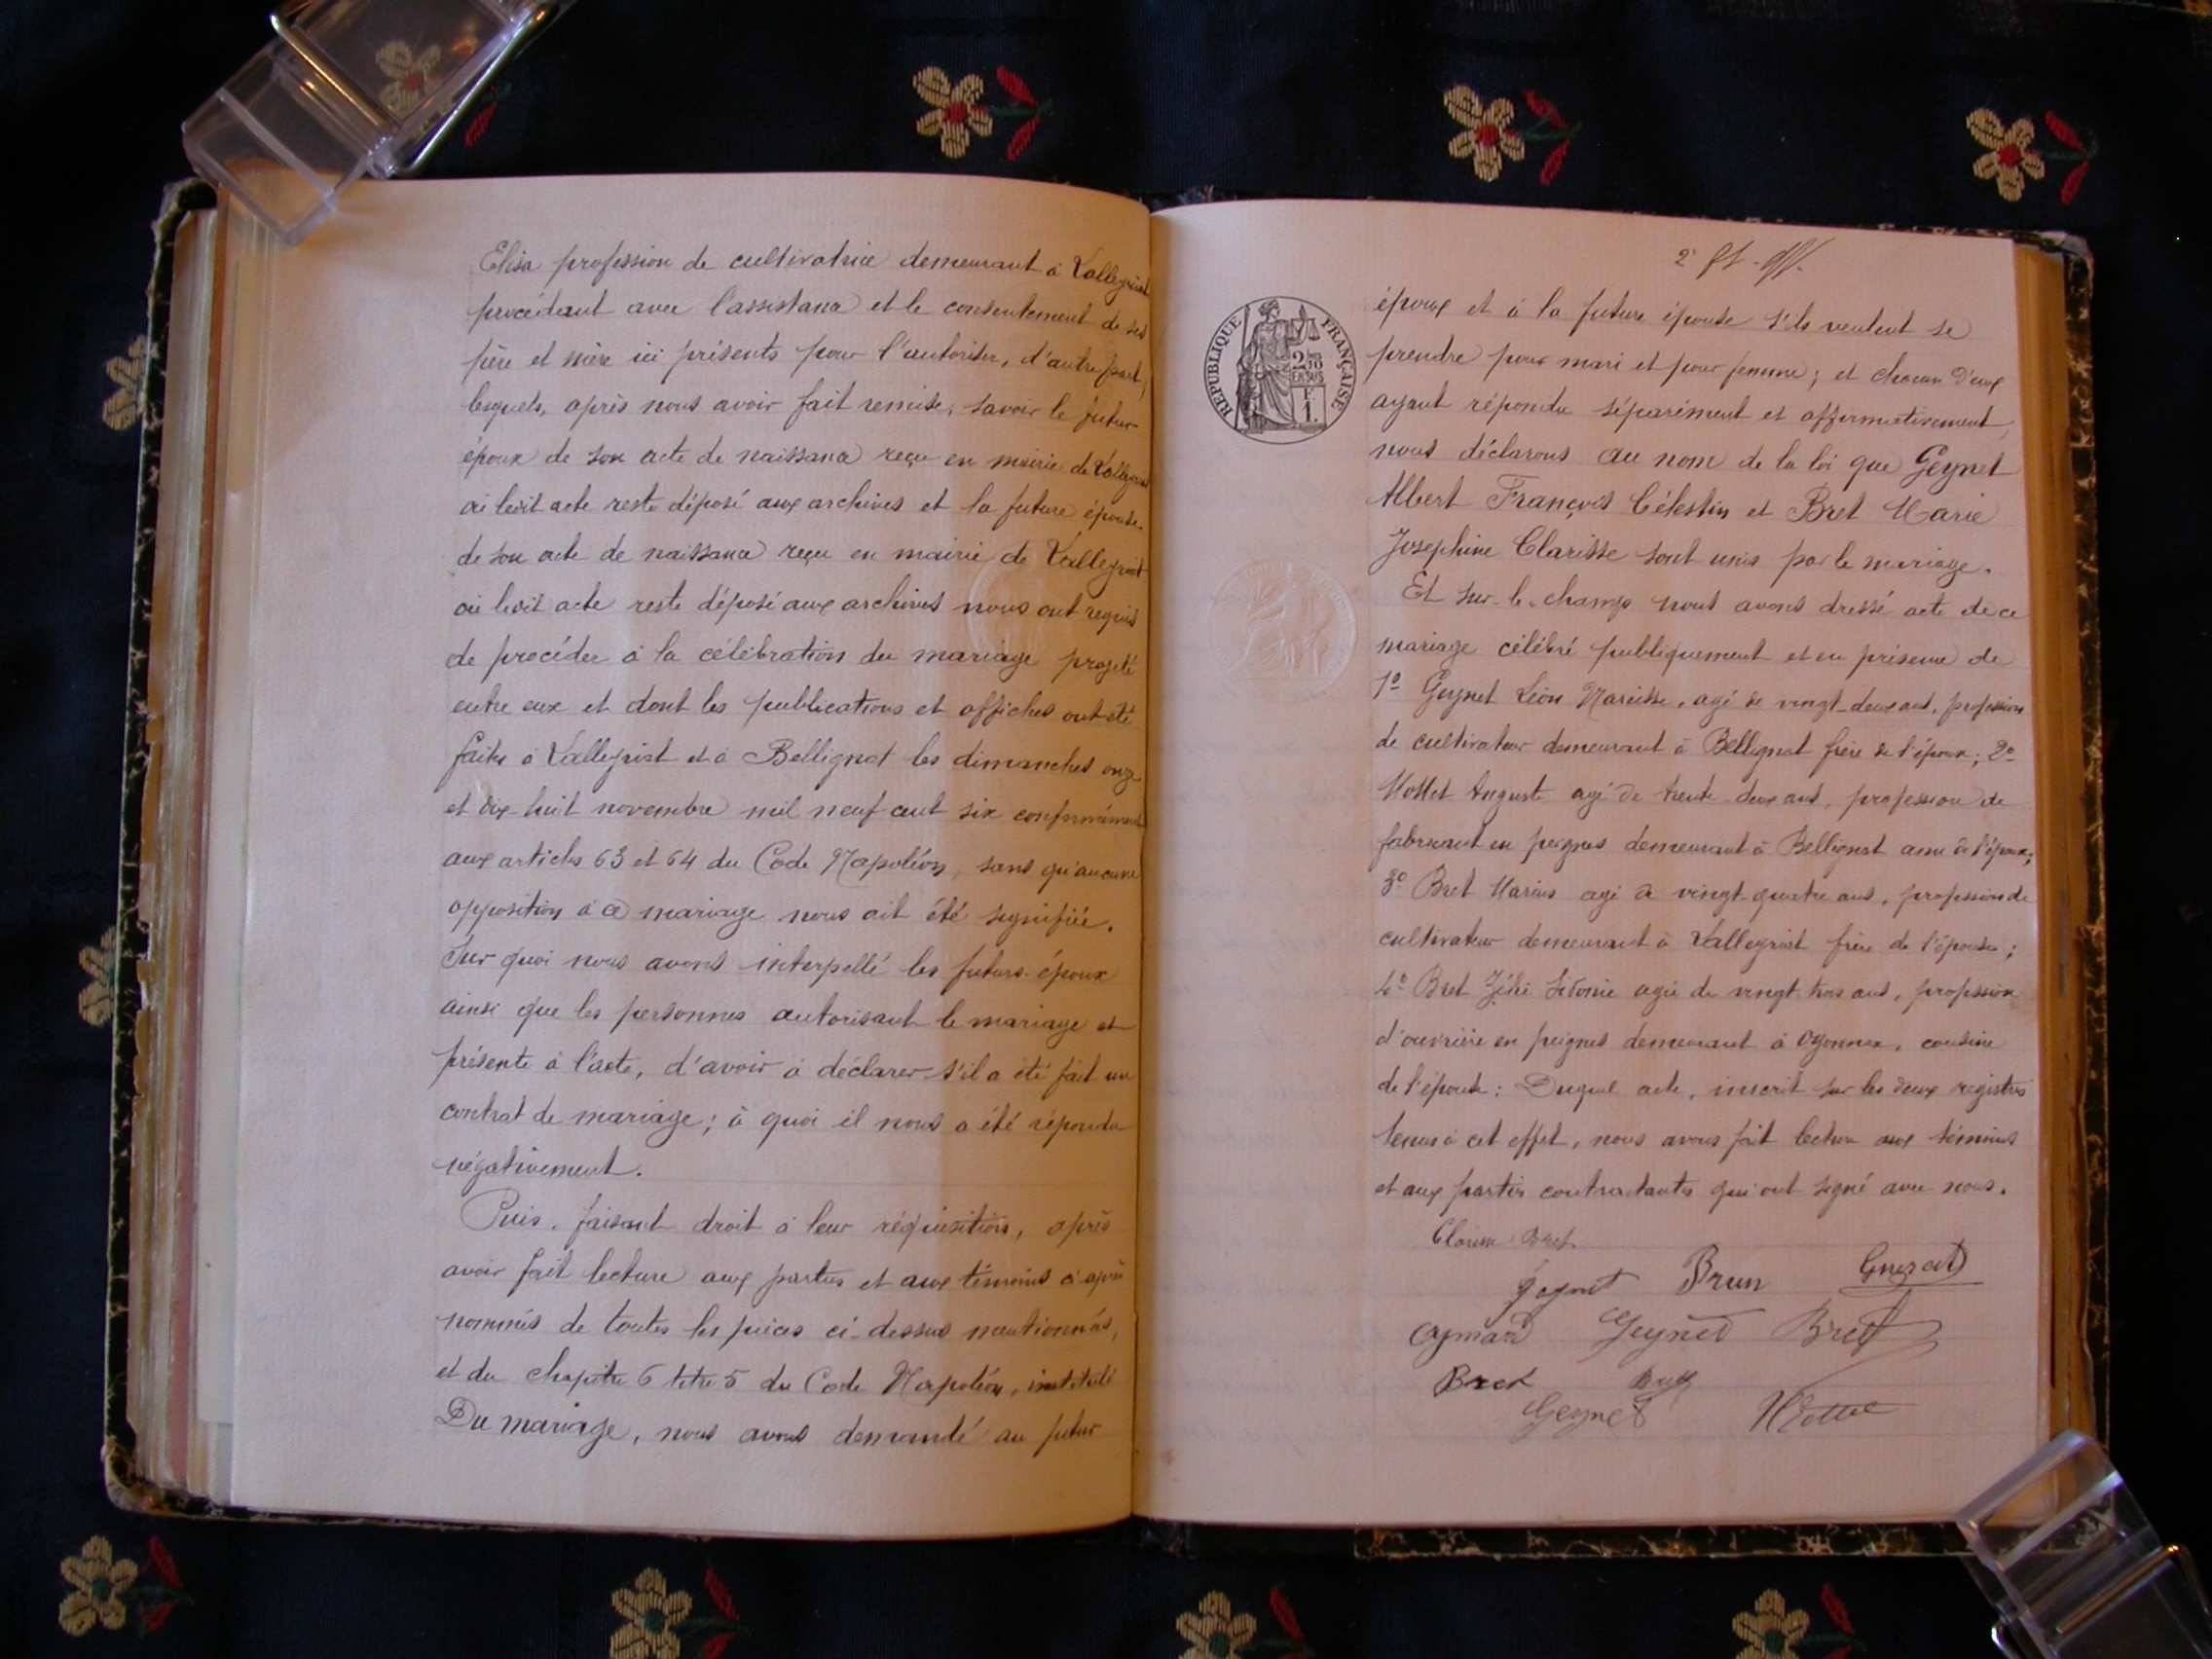 Elisa profession de cultivatrice demeurant à Vallegriat
procédant avec l'assistance et le consentement de ses
père et mère ici présents pour l'autoriser, d'autre part,
lesquels, après nous avoir fait remise, savoir le futur
époux de son acte de naissance reçu en mairie de Vallegriat
où ledit acte reste déposé aux archives et la future épouse
de son acte de naissance reçu en mairie de Vallegriat
où ledit acte reste déposé aux archives nous ont requis
de procéder à la célébration du mariage projeté
entre eux et dont les publications et affiches ont été
faites à Vallegriat et à Bellignat les dimanches onze
et dix-huit novembre mil neuf cent six conformément
aux articles 63 et 64 du Code Napoléon, sans qu'aucune
opposition à ce mariage nous ait été signifiée.
Sur quoi nous avons interpellé les futurs époux
ainsi que les personnes autorisant le mariage et
présente à l'acte, d'avoir à déclarer s'il a été fait un
contrat de mariage; à quoi il nous a été répondu
négativement.
Puis, faisant droit à leur réquisition, après
avoir fait lecture aux parties et aux témoins ci après
nommés de toutes les pièces ci-dessus mentionnées,
et du chapitre 6 titre 5 du Code Napoléon, intitulé
Du mariage, nous avons demandé au futur
époux et à la future épouse s'ils veulent se
prendre pour mari et pour femme; et chacun d'eux
ayant répondu séparément et affirmativement,
nous déclarons au nom de la loi que Geynet
Albert François Célestin et Bret Marie
Josephine Clarisse sont unis par le mariage.
Et sur-le-champ nous avons dressé acte de ce
mariage célébré publiquement et en présence de
1º Geynet Léon Narcisse, agé de vingt-deux ans, profession
de cultivateur demeurant à Bellignat frère de l'époux; 2º
Mottet Auguste agé de trente-deux ans, profession de
fabricant en peignes demeurant à Bellignat ami de l'époux;
3º Bret Marius agé de vingt-quatre ans, profession de
cultivateur demeurant à Vallegriat frère de l'épouse;
4º Bret Zélie Sidonie agée de vingt-trois ans, profession
d'ouvrière en peignes demeurant à Oyonnax, cousine
de l'épouse: Duquel acte, inscrit sur les deux registres
tenus à cet effet, nous avons fait lecture aux témoins
et aux parties contractantes qui ont signé avec nous.
REPUBLIQUE FRANÇAISE
Clarisse Bret
Geynet Brun
Aymard Geynet Bret
Bret
Geynet